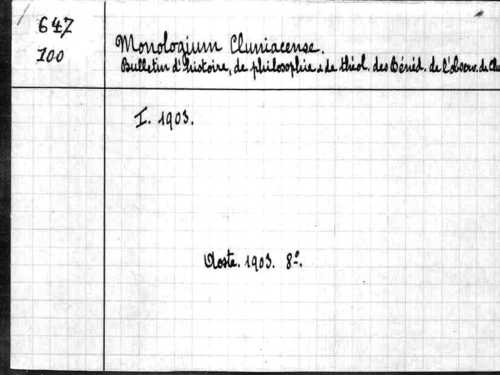 647
100
Monologium Cluniacense.
Bulletin d'histoire, de philosophie & de théol. des Bénéd. de l'observ. de Clu
I. 1903.
Aoste. 1903. 8º.